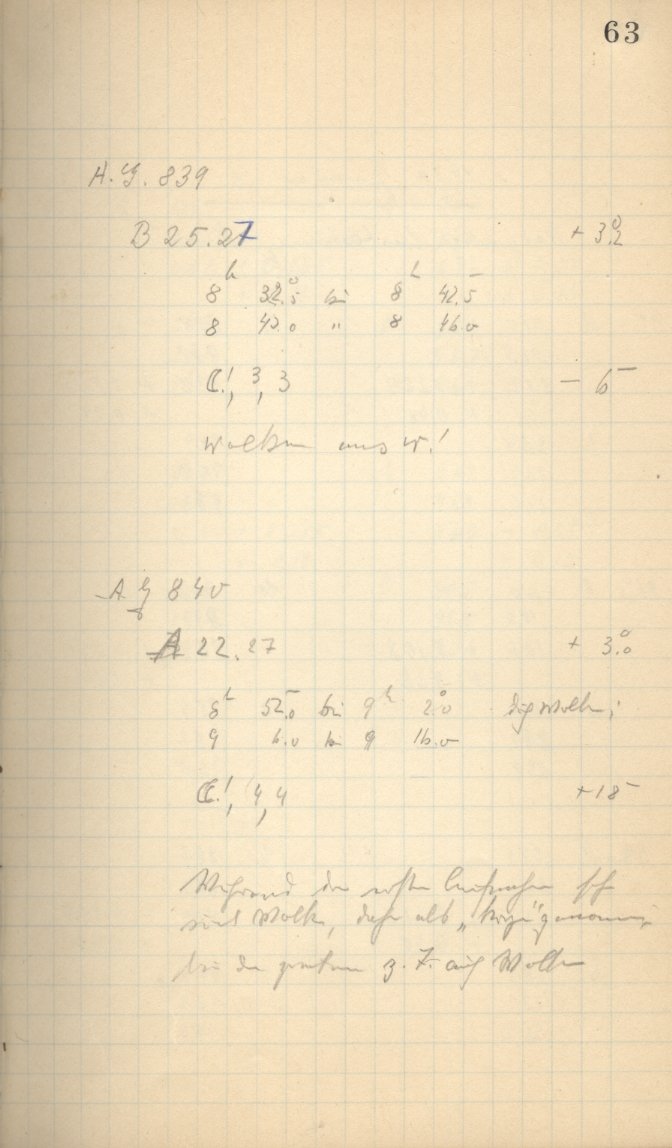 63
A. G. 839
B 25.27 + 3.2°
8h 32.5 bis 8h 42.5
8 43.0 " 8 46.0
☾!, 3, 3 − 6
Wolken aus W.!
A G 840
A 22.27 + 3.0°
8h 52.0 bis 9h 2.0
9 6.0 bis 9 16.0
☾!, 4, 4 + 18
Während der ersten Aufnahme sehr
viel Wolken, daher als
bei der zweiten z. T. auch Wolken